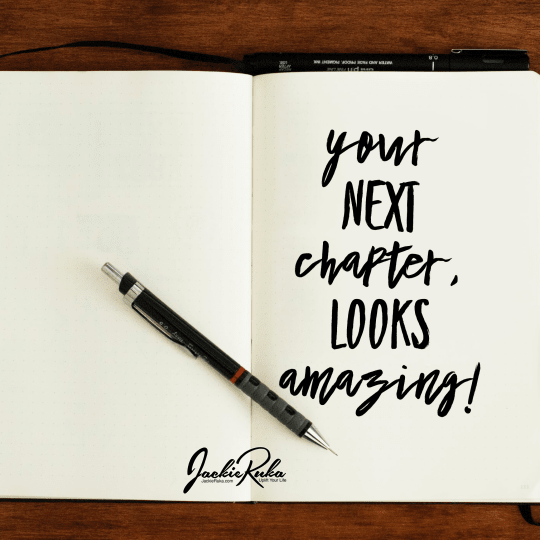 WATER AND FADE PROOF, PIGMENT INK
0.8
your
NEXT
chapter,
LOOKS
amazing!
JackieRuka
JackieRuka.com Uplift Your Life